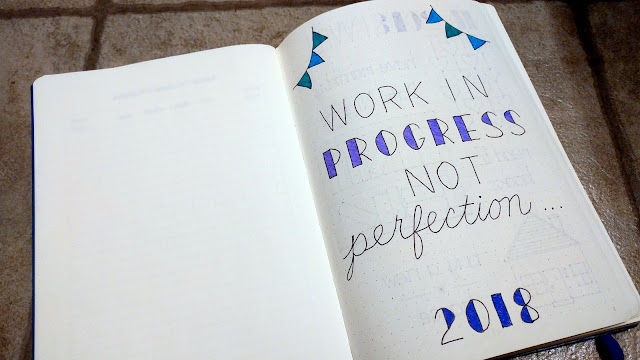 WORK IN
PROGRESS
NOT
perfection...
2018